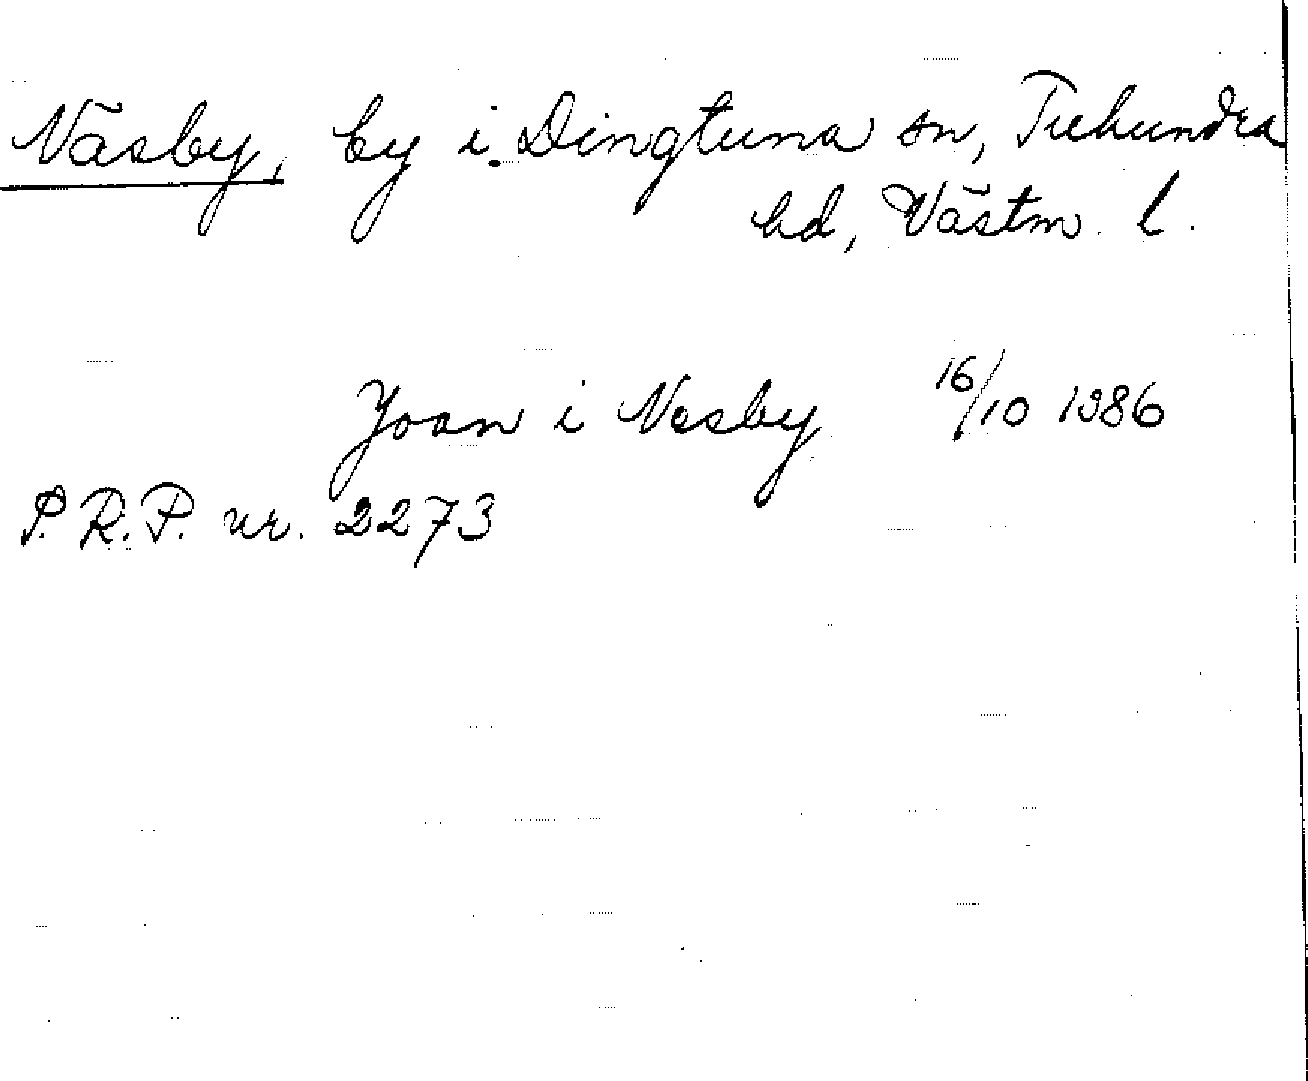 Näsby, by i Dingtuna sn, Tuhundra
hd, Västm. l.
Joan i Nesby 16/10 1386
S.R.P. nr. 2273